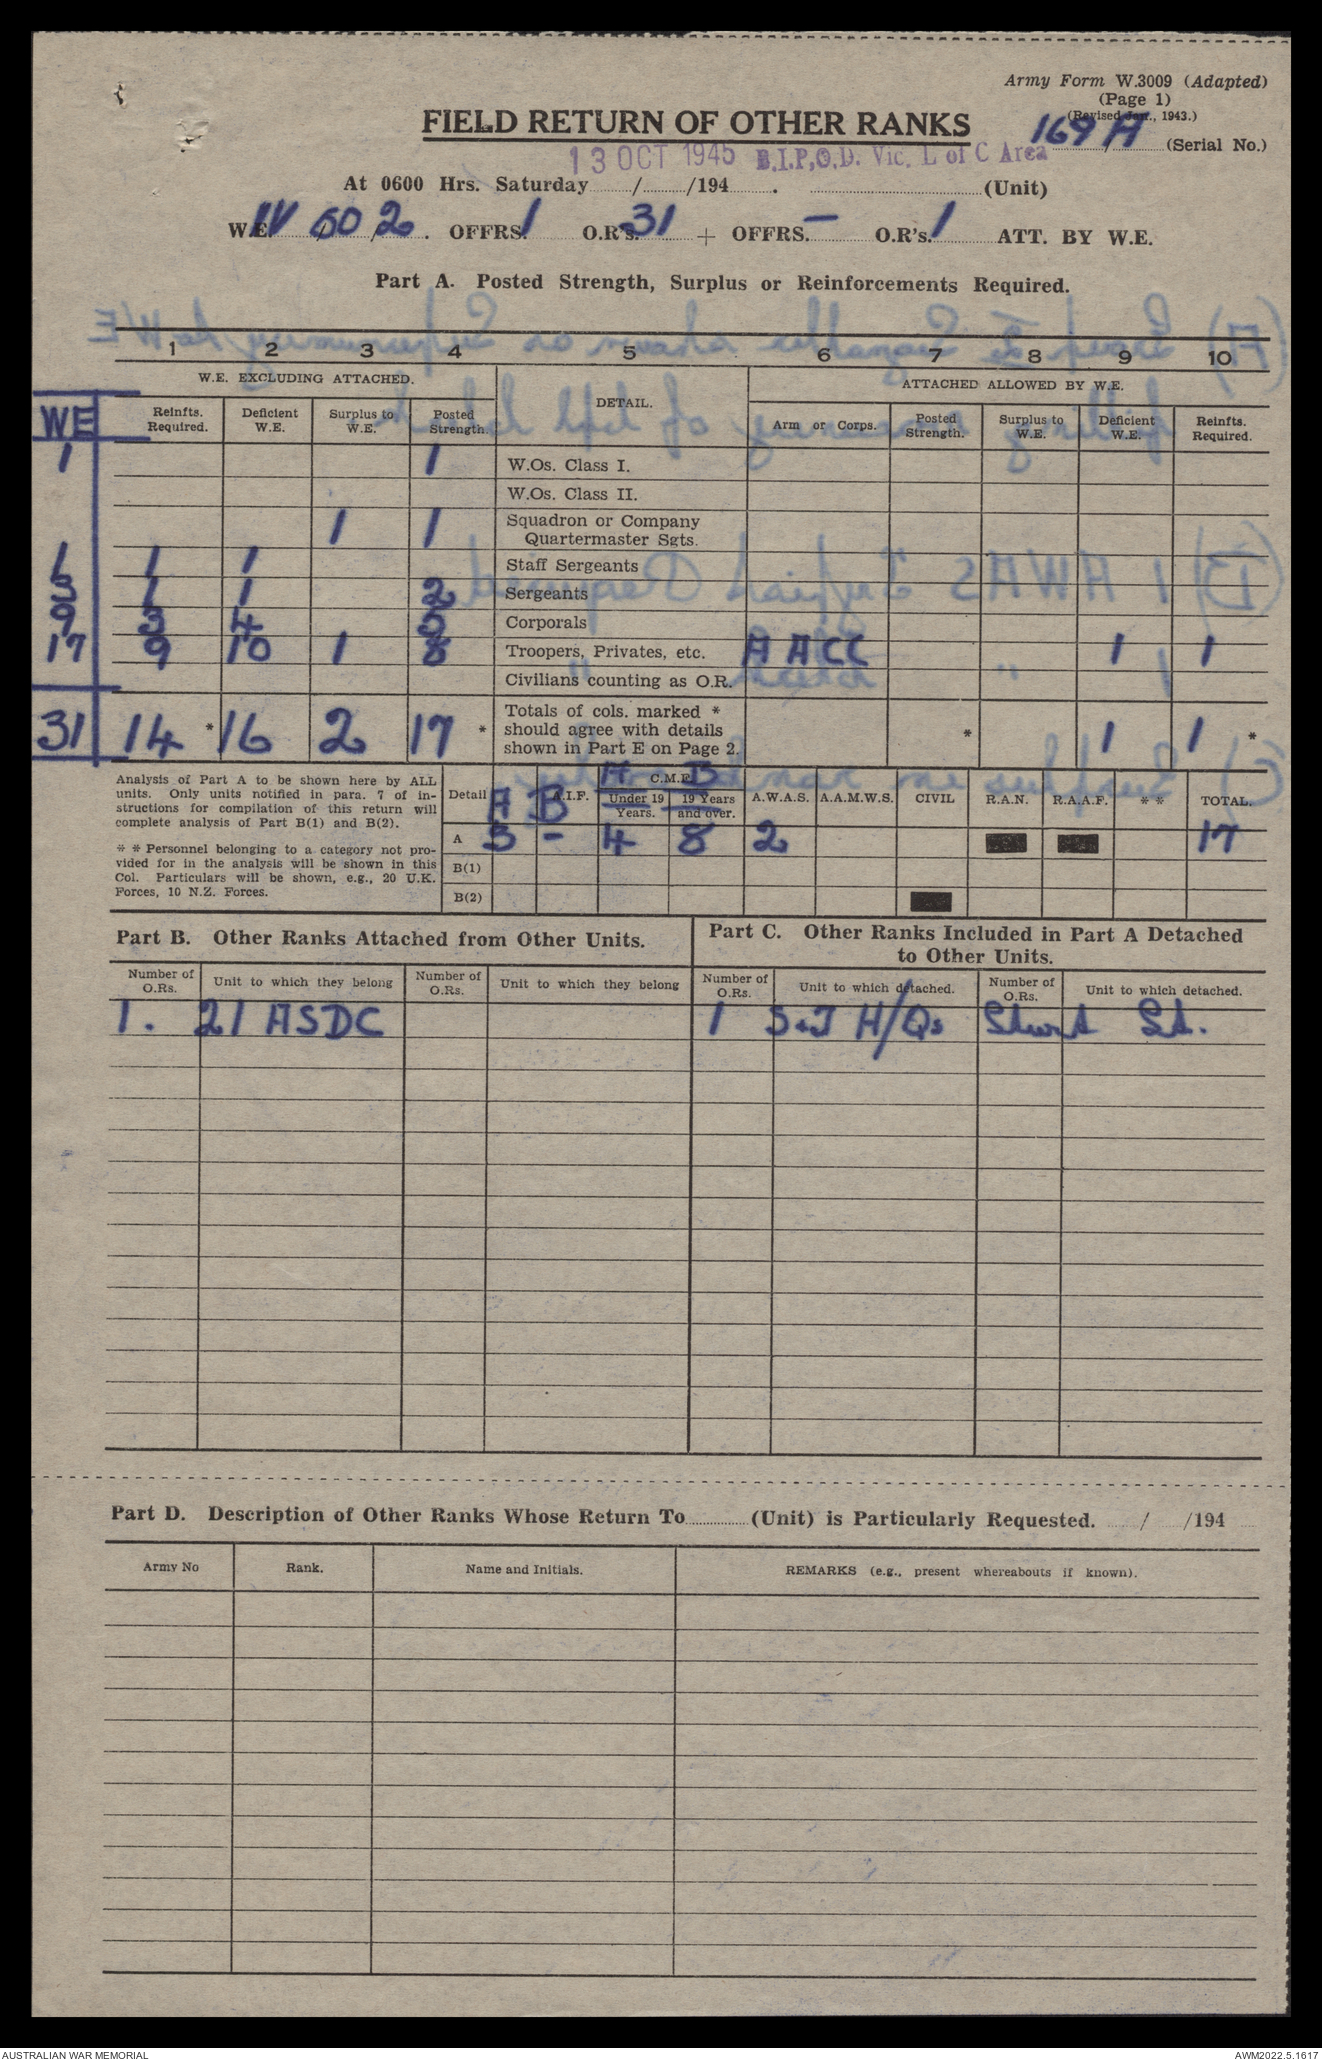 Army Form W.3009 (Adapted)
(Page 1)
(Revised Jan., 1943.)
FIELD RETURN OF OTHER RANKS
169 A (Serial No.)
13 OCT 1945 B.I.P.O.D. Vic. L of C Area
At 0600 Hrs. Saturday / /194 . (Unit)
W.E. IV 502 . OFFRS. 1 O.R's. 31 + OFFRS. — O.R's. 1 ATT. BY W.E.
Part A. Posted Strength, Surplus or Reinforcements Required.
1 2 3 4 5 6 7 8 9 10
W.E. EXCLUDING ATTACHED. DETAIL. ATTACHED ALLOWED BY W.E.
WE Reinfts. Required. Deficient W.E. Surplus to W.E. Posted Strength. Arm or Corps. Posted Strength. Surplus to W.E. Deficient W.E. Reinfts. Required.
1 1 W.Os. Class I.
W.Os. Class II.
1 1 Squadron or Company Quartermaster Sgts.
1 1 1 Staff Sergeants
3 1 1 2 Sergeants
9 3 4 5 Corporals
17 9 10 1 8 Troopers, Privates, etc. AACC 1 1
Civilians counting as O.R.
31 14 * 16 2 17 * Totals of cols. marked * should agree with details shown in Part E on Page 2. * 1 1 *
Analysis of Part A to be shown here by ALL
units. Only units notified in para. 7 of in-
structions for compilation of this return will
complete analysis of Part B(1) and B(2).
* * Personnel belonging to a category not pro-
vided for in the analysis will be shown in this
Col. Particulars will be shown, e.g., 20 U.K.
Forces, 10 N.Z. Forces.
A C.M.F. B
Detail A B A.I.F. Under 19 Years. 19 Years and over. A.W.A.S. A.A.M.W.S. CIVIL R.A.N. R.A.A.F. * * TOTAL.
A 3 - 4 8 2 17
B(1)
B(2)
Part B. Other Ranks Attached from Other Units.
Part C. Other Ranks Included in Part A Detached
to Other Units.
Number of O.Rs. Unit to which they belong Number of O.Rs. Unit to which they belong Number of O.Rs. Unit to which detached. Number of O.Rs. Unit to which detached.
1. 21 ASDC 1 S&T H/Qs Sturt St.
Part D. Description of Other Ranks Whose Return To (Unit) is Particularly Requested. / /194
Army No Rank. Name and Initials. REMARKS (e.g., present whereabouts if known).
AUSTRALIAN WAR MEMORIAL AWM2022.5.1617